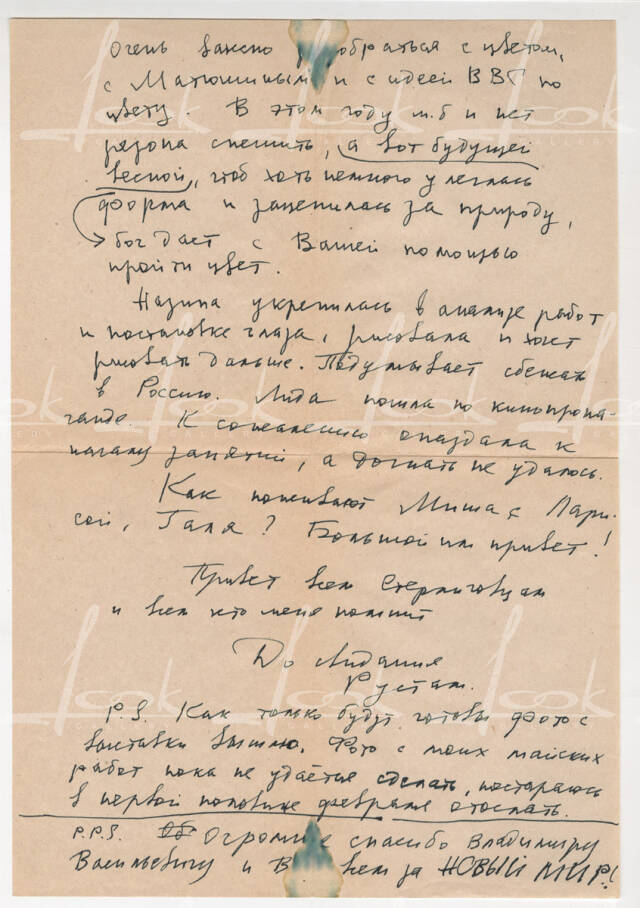 Очень важно разобраться с цветом,
с Матюшиным и с идеей ВВС по
цвету. В этом году м.б и нет
резона спешить, а вот будущей
весной, чтоб хоть немного улеглась
форма и зацепилась за природу,
бог даст с Вашей помощью
пройти цвет.
Назипа укрепилась в анализе работ
и постановке глаза, рисовала и хочет
рисовать дальше. Подумывает сбежать
в Россию. Лида пошла по кинопропа-
ганде. К сожалению опоздала к
началу занятий, а догнать не удалось.
Как поживают Миша с Лари-
сой, Галя? Большой им привет!
Привет всем Стерлиговцам
и всем кто меня помнит
До свидания
Рустам.
P.S. Как только будут готовы фото с
выставки вышлю. Фото с моих майских
работ пока не удаётся сделать, постараюсь
в первой половине февраля отослать.
P.P.S. Огромное спасибо Владимиру
Васильевичу и всем за НОВЫЙ МИР!